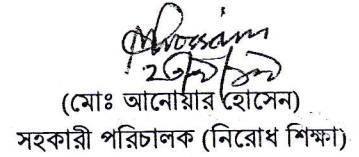 (মোঃ আনোয়ার হোসেন)
সহকারী পরিচালক (নিরোধ শিক্ষা)